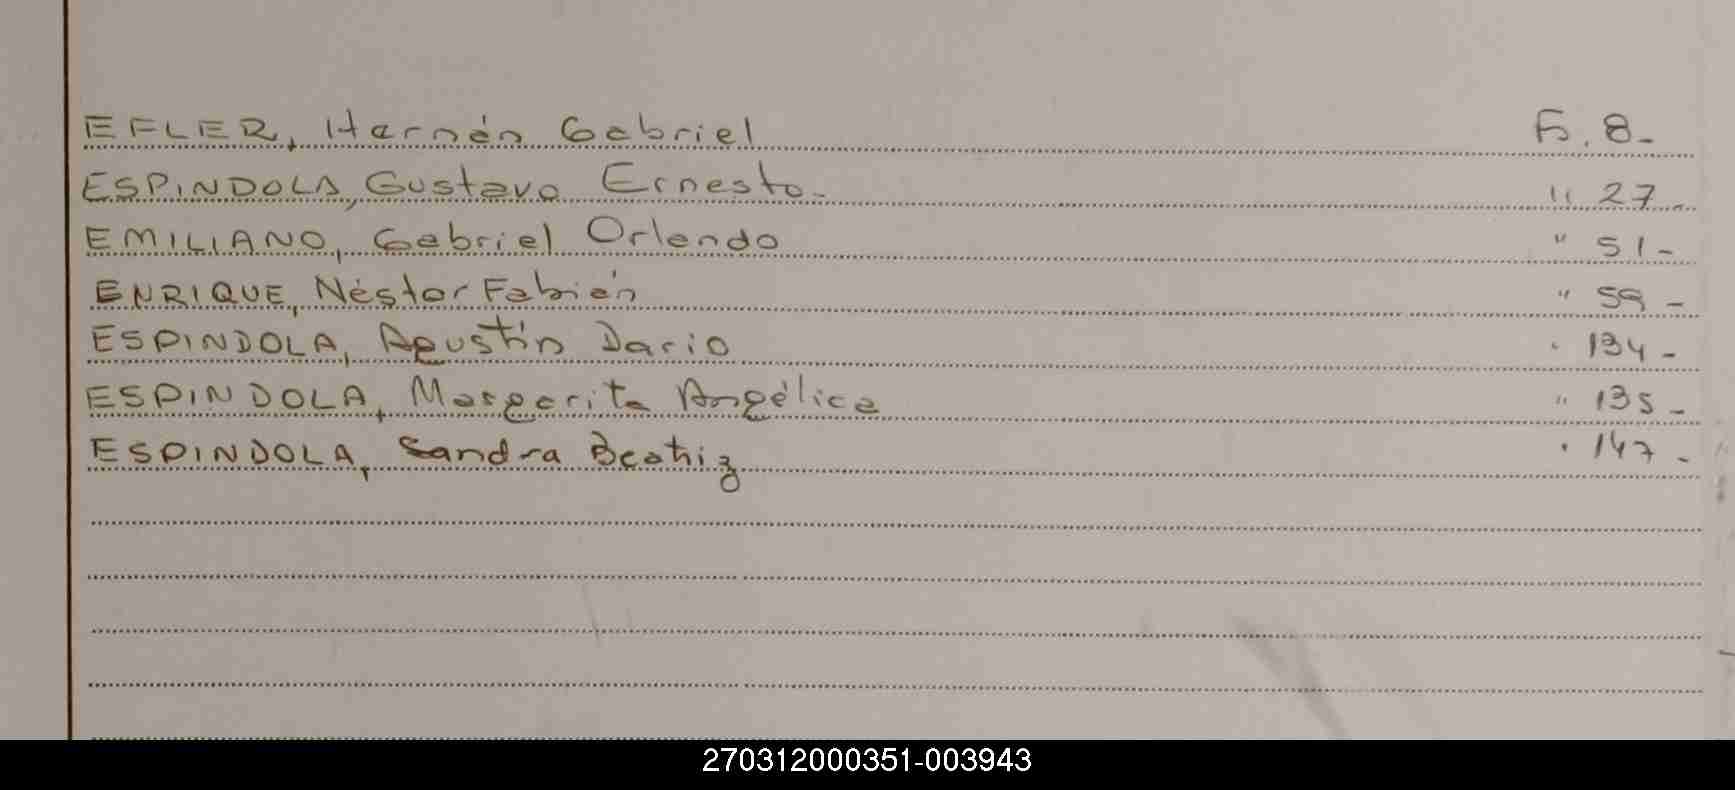 EFLER, Hernán Gabriel Fo. 8-
ESPINDOLA, Gustavo Ernesto- " 27-
EMILIANO, Gabriel Orlando " 51-
ENRIQUE, Néstor Fabián " 59-
ESPINDOLA, Agustín Dario " 134-
ESPINDOLA, Margarita Angélica " 135-
ESPINDOLA, Sandra Beatriz " 147-
270312000351-003943